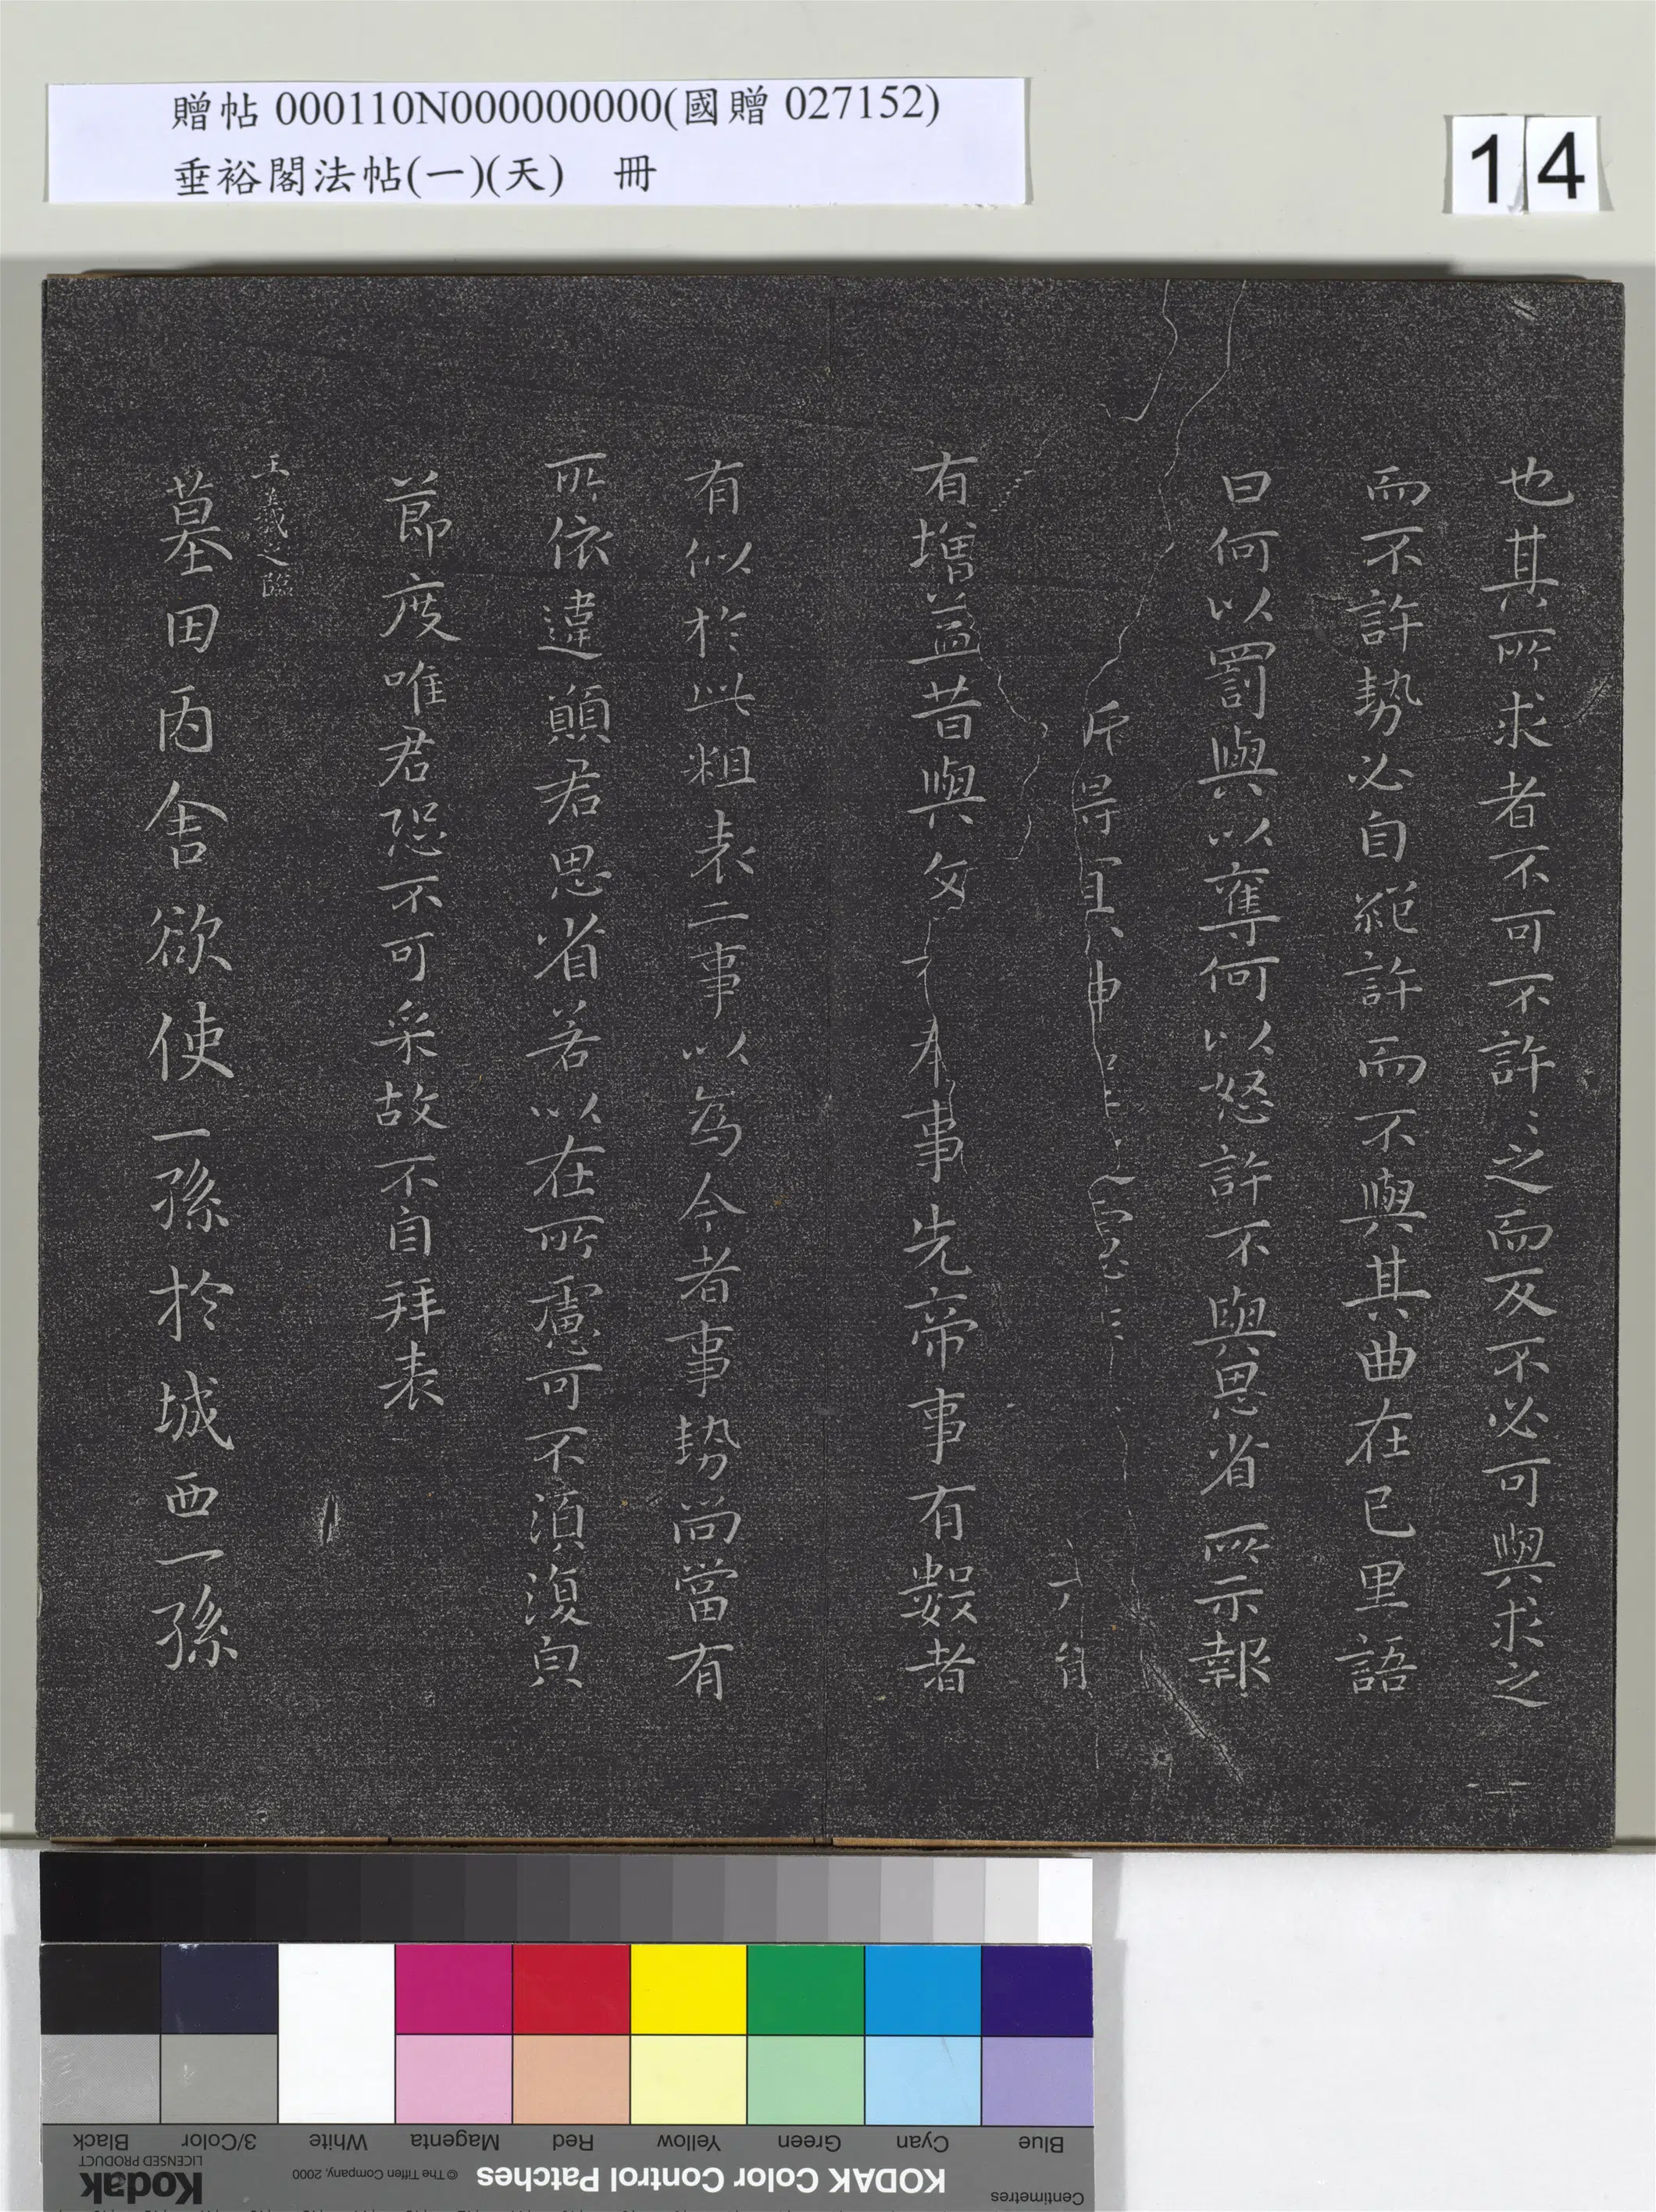 贈帖 000110N000000000(國贈 027152)
垂裕閣法帖(一)(天) 冊
14
也其所求者不可不許許之而反不必可與求之
而不許勢必自絕許而不與其曲在己里語
曰何以罰與以奪何以怒許不與思省所示報
斥得宜申 六自
有增益昔與 事先帝事有數者
有似於此粗表二事以為今者事勢尚當有
所依違願君思省若以在所慮可不須復皃
節度唯君恐不可采故不自拜表
王羲之臨
墓田丙舍欲使一孫於城西一孫
Black
3/Color
White
Magenta
Red
Yellow
Green
Cyan
Blue
Kodak
LICENSED PRODUCT
© The Tiffen Company, 2000
KODAK Color Control Patches
Centimetres